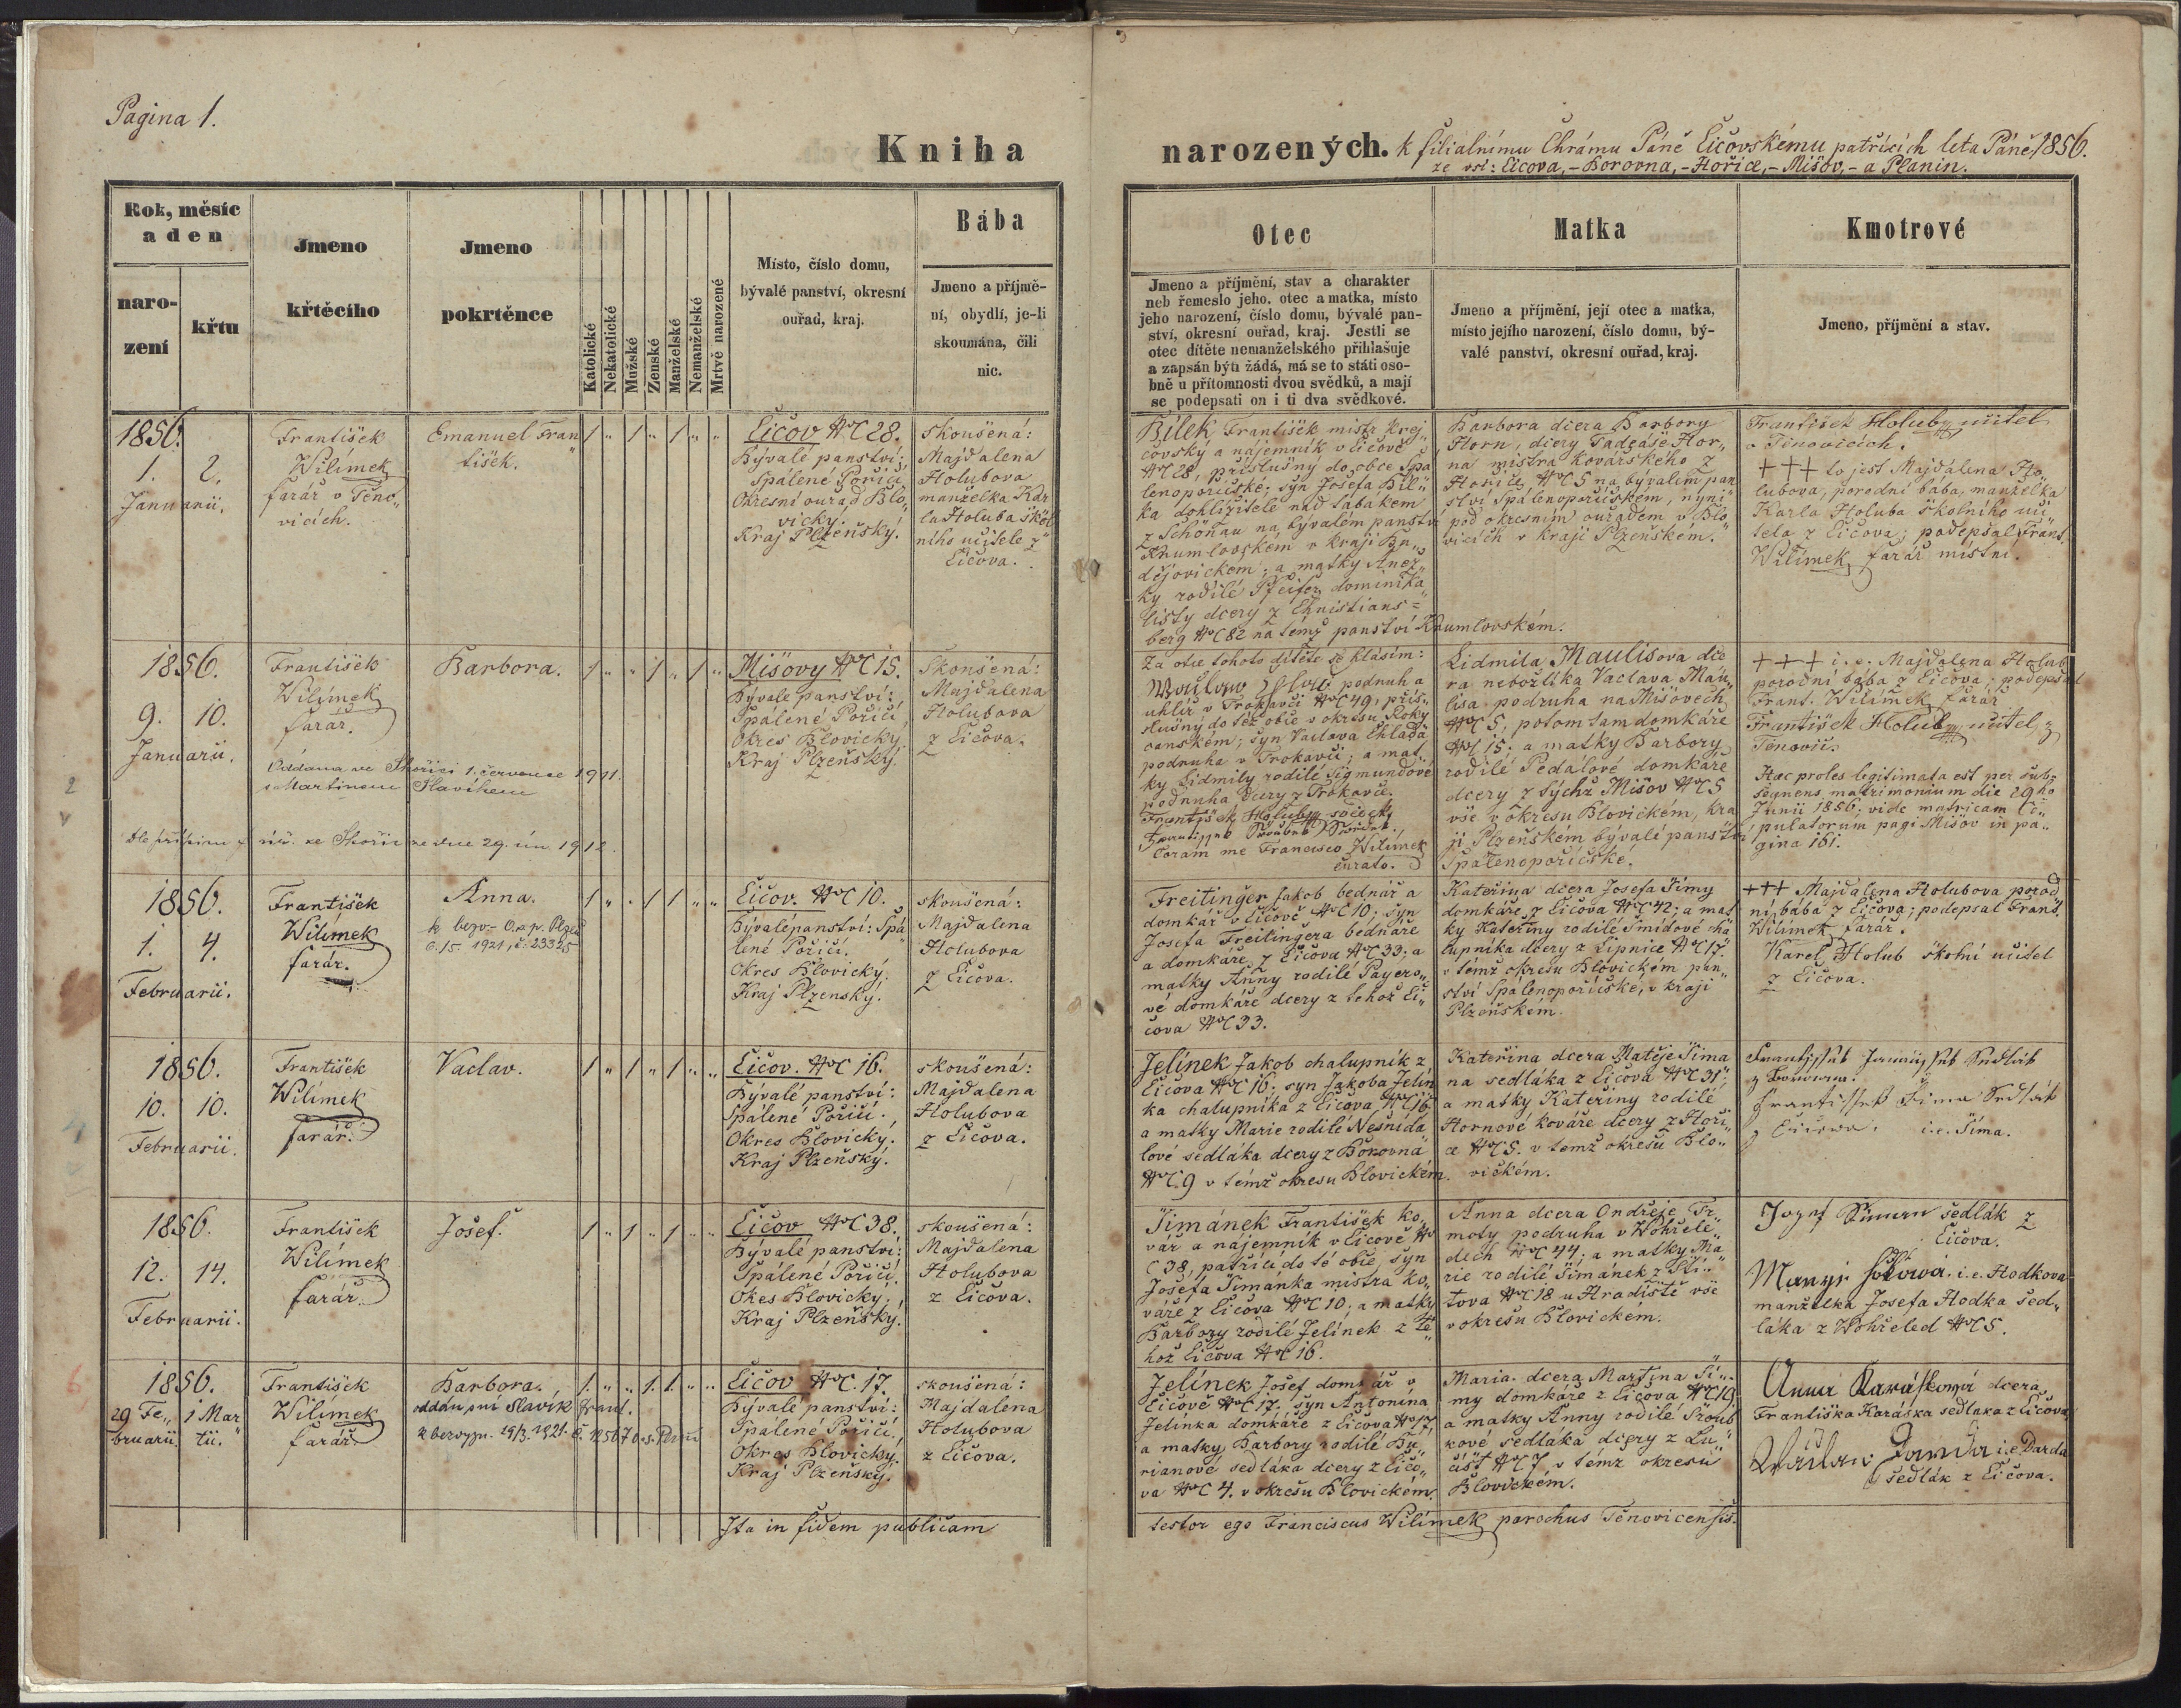 Pagina 1.
Kniha
narozených. k filialnimu Chrámu Páně Čičovskému patřících leta Páně 1856.
ze vsí: Čičova, - Borovna, - Hořice, - Mišov, - a Planin.
Rok, měsíc
a den
naro-
zení
křtu
Jmeno
křtěcího
Jmeno
pokrtěnce
Katolické
Nekatolické
Mužské
Zenské
Manželské
Nemanželské
Mrtvě narozené
Místo, číslo domu,
bývalé panství, okresní
ouřad, kraj.
Bába
Jmeno a přijmě-
ní, obydlí, je-li
skoumána, čili
nic.
Otec
Jmeno a příjmění, stav a charakter
neb řemeslo jeho. otec a matka, místo
jeho narození, číslo domu, bývalé pan-
ství, okresní ouřad, kraj. Jestli se
otec dítěte nemanželského přihlašuje
a zapsán býti žádá, má se to státi oso-
bně u přítomnosti dvou svědků, a mají
se podepsati on i ti dva svědkové.
Matka
Jmeno a příjmění, její otec a matka,
místo jejího narození, číslo domu, bý-
valé panství, okresní ouřad, kraj.
Kmotrové
Jmeno, příjmění a stav.
1856.
1. 2.
Januarii.
František
Wilímek
farář v Těno„
vicích.
Emanuel Fran„
tišek.
1 „ 1 „ 1 „ „
Čičov NC 28.
Bývalé panství:
Spálené Poříčí,
Okresní ouřad Blo„
vicky.
Kraj Plzeňský.
skoušená:
Majdalena
Holubova
manželka Kar
la Holuba škol
ního učitele z
Čičova.
Bílek František mistr krej„
čovský a nájemník v Čičově
NC 28, příslušný do obce Spá
lenopoříčské; syn Josefa Bíl„
ka dohlížitele nad tabákem
z Schönau na bývalém panství
Krumlovském v kraji Bu„
dějovickem; a matky Anež„
ky rodilé Pfeifer, dominika„
listy dcery z Christians=
berg NC 82 na témž panství Krumlovském.
Barbora dcera Barbory
Horn, dcery Tadeáše Hor„
na mistra kovářského z
Hořic, NC 5 na bývalém pan
ství Spálenopoříčském, nyní
pod okresním ouřadem v Blo
vicích v kraji Plzeňském.
František Holub učitel
v Těnovicích.
+++ to jest Majdalena Ho„
lubova, porodní bába, manželka
Karla Holuba školního uči
tela z Čičova; podepsal Frant.
Wilímek farář místní.
1856.
9. 10.
Januarii.
František
Wilímek
farář.
Barbora.
1 „ „ 1 „ 1 „
Oddána ve Skořici 1. července 1911.
s Martinem Slavíkem
dle přípisu f. úřú. ve Skořic ze dne 29. ún. 1912.
Mišovy NC 15.
Bývalé panství:
Spálené Poříčí,
Okres Blovicky
Kraj Plzeňský.
Skoušená:
Majdalena
Holubova
z Čičova.
Za otce tohoto dítěte se hlásím:
podruh a
uhlíř v Trokavci NC 49, přís„
slušný do též obce v okresu Roky
canském; syn Václava Chlada
podruha v Trokavci; a mat„
ky Lidmily rodilé Sigmundové
podruha dcery z Trokavce.
František Holub svědek
Coram me Francisco Wilímek
curato.
Lidmila Maulisova dce
ra nebožtíka Vaclava Mau„
lisa podruha na Mišovech
NC 5; potom tam domkáře
NC 15; a matky Barbory
rodilé Pedalové domkáře
dcery z týchž Mišov NC 5
vše v okresu Blovickém, kra
ji Plzeňském bývalé panství
Spálenopoříčské.
+++ i. e. Majdalena Holub
porodní bába z Čičova; podepsal
Frant. Wilímek farář
František Holub, učitel z
Těnovic.
Haec proles legitimata est per sub„
sequens matrimonium die 29ho
Junii 1856; vide matricam Co„
pulatorum pagi Mišov in pa„
gina 161.
1856.
1. 4.
Februarii.
František
Wilímek
farář.
Anna.
6. 15. 1921, č. 23325
1 „ „ 1 1 „ „
Čičov. NC 10.
Bývalé panství: Spá
lené Poříčí.
Okres Blovický.
Kraj Plzenský.
skoušená:
Majdalena
Holubova
z Čičova.
Freitinger Jakob bednář a
domkář v Čičově NC 10; syn
Josefa Freitingera bednáře
a domkáře z Čičova NC 33; a
matky Anny rodilé Payero„
vé domkáře dcery z tehož Či„
čova NC 33.
Kateřina dcera Josefa Šimy
domkáře z Čičova NC 42; a mat
ky Kateřiny rodilé Šmídové cha
lupníka dcery z Lipnice NC 17.
v témž okresu Blovickém pan„
ství Spálenopoříčské, v kraji
Plzeňském.
+++ Majdalena Holubova porod
ní bába z Čičova; podepsal Frant.
Wilímek farář.
Karel Holub školní učitel
z Čičova.
1856.
10. 10.
Februarii.
František
Wilímek
farář.
Vaclav.
1 „ 1 „ 1 „ „
Čičov. NC 16.
Bývalé panství:
Spálené Poříčí.
Okres Blovický.
Kraj Plzeňský.
skoušená:
Majdalena
Holubova
z Čičova.
Jelínek Jakob chalupník z
Čičova NC 16; syn Jakoba Jelín
ka chalupníka z Čičova NC 16
a matky Marie rodilé Nesnída
lové sedláka dcery z Borovna
NC 9 v témž okresu Blovickém.
Kateřina dcera Matěje Šima
na sedláka z Čičova NC 31,
a matky Kateřiny rodilé
Hornové kováře dcery z Hoři„
ce NC 5. v temž okresu Blo„
vickém.
z Borovna.
František Šima Sedlák
z Čičova. i. e. Šima.
1856.
12. 14.
Februarii.
František
Wilímek
farář.
Josef.
1 „ 1 „ 1 „ „
Čičov NC 38.
Bývalé panství:
Spálené Poříčí.
Okes Blovický.
Kraj Plzeňský.
skoušená:
Majdalena
Holubova
z Čičova.
Šimánek František ko„
vář a nájemník v Čičově N
C 38, patřící do té obce, syn
Josefa Šimanka mistra ko„
váře z Čičova NC 10; a matky
Barbory rodilé Jelínek z té„
hož Čičova NC 16.
Anna dcera Ondřeje Tr„
moty podruha v Wohřele„
dech NC 44; a matky Ma
rie rodilé Šimánek z Sti„
tova NC 18 u Hradiště vše
v okresu Blovickém.
Jozef Šiman sedlák z
Čičova.
i. e. Hodkova
manželka Josefa Hodka sed„
láka z Wohřeled NC 5.
1856.
29 Fe„ 1 Mar
bruarii. tii.
František
Wilímek
farář.
Barbora.
oddán s ní Slavík Frant.
1. „ „ 1. 1. „ „
Čičov NC. 17.
Bývalé panství:
Spálené Poříčí.
Okres Blovický.
Kraj Plzeňský.
skoušená:
Majdalena
Holubova
z Čičova.
Jelínek Josef domkář v
Čičově NC 17. syn Antonína
Jelínka domkáře z Čičova NC 17,
a matky Barbory rodilé Bu„
rianové sedláka dcery z Čičo„
va NC 4. v okresu Blovickém.
Maria dcera Martina Ši„
my domkáře z Čičova NC 19.
a matky Anny rodilé Šroub
kové sedláka dcery z Lu„
čišť NC 7 v témž okresu
Blovickém.
Anna Karásková dcera
Františka Karáska sedláka z Čičova
Václav Darda i. e Darda
sedlák z Čičova.
Ita in fidem publicam
testor ego Franciscus Wilímek parochus Těnovicensis.